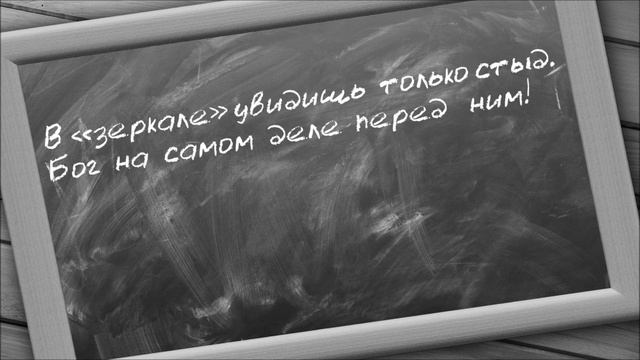 В «зеркале» увидишь только стыд.
Бог на самом деле перед ним!